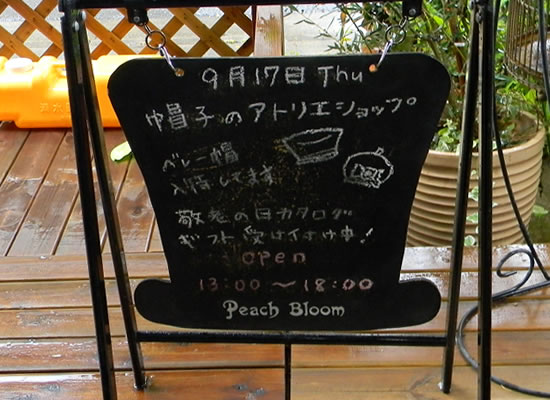 9月17日 Thu
帽子のアトリエショップ
ベレー帽
入荷してます
敬老の日カタログ
ギフト受け付け中!
open
13:00〜18:00
Peach Bloom